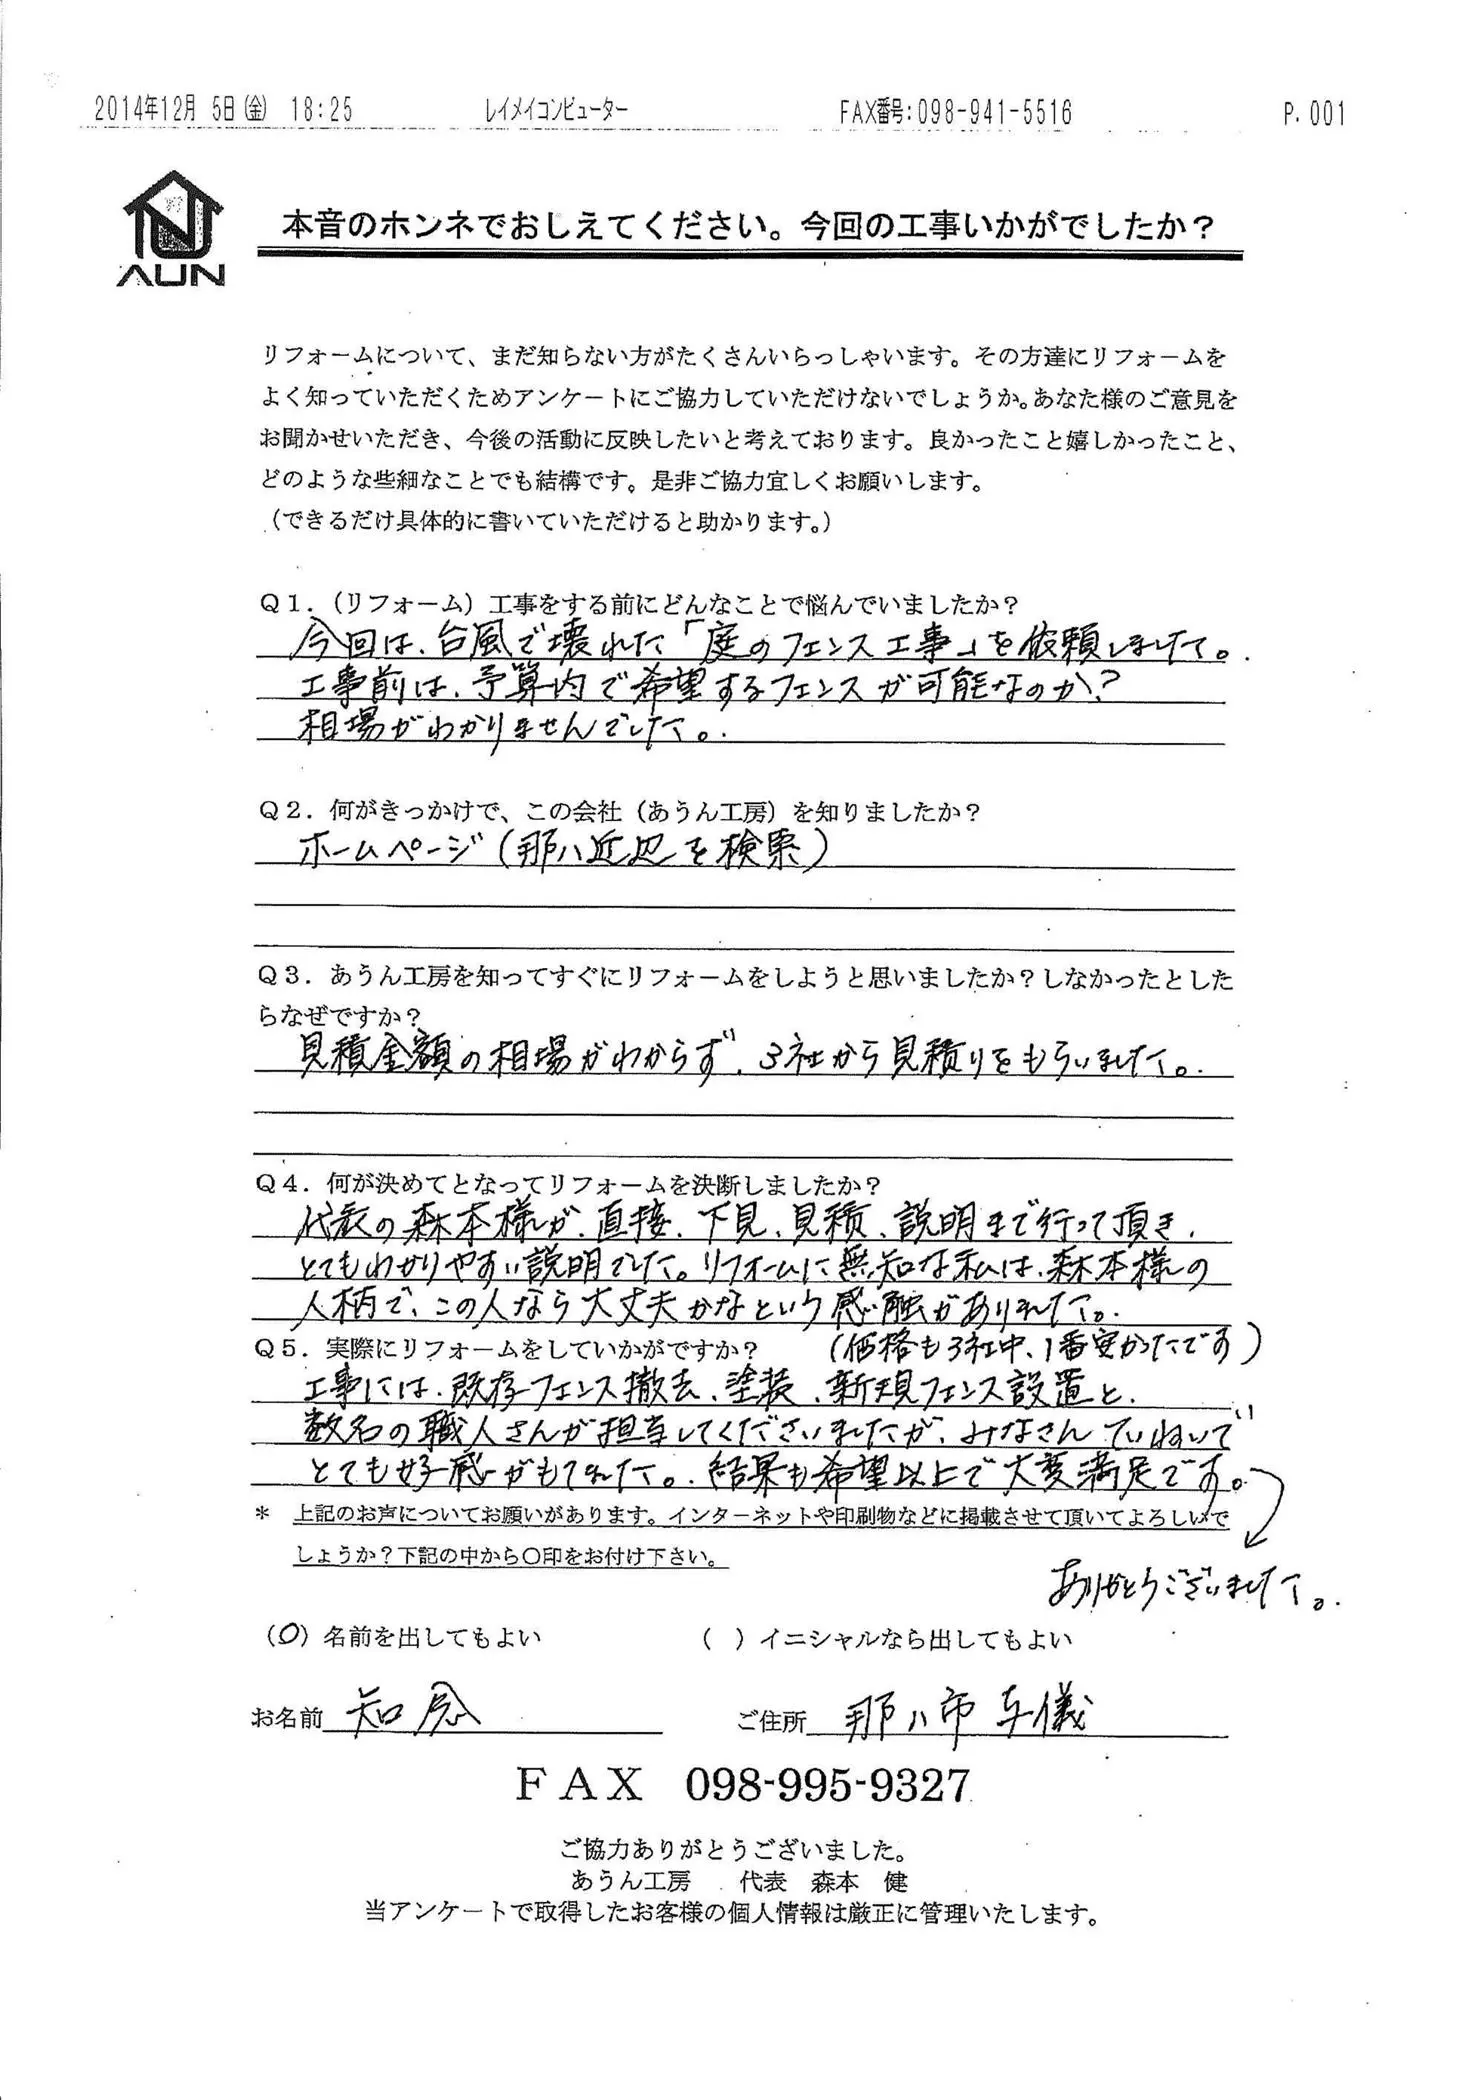 2014年12月 5日(金) 18:25 レイメイコンピューター FAX番号:098-941-5516 P.001
AUN
本音のホンネでおしえてください。今回の工事いかがでしたか？
リフォームについて、まだ知らない方がたくさんいらっしゃいます。その方達にリフォームを
よく知っていただくためアンケートにご協力していただけないでしょうか。あなた様のご意見を
お聞かせいただき、今後の活動に反映したいと考えております。良かったこと嬉しかったこと、
どのような些細なことでも結構です。是非ご協力宜しくお願いします。
（できるだけ具体的に書いていただけると助かります。）
Ｑ１．（リフォーム）工事をする前にどんなことで悩んでいましたか？
今回は、台風で壊れた「庭のフェンス工事」を依頼しました。
工事前は、予算内で希望するフェンスが可能なのか？
相場がわかりませんでした。
Ｑ２．何がきっかけで、この会社（あうん工房）を知りましたか？
ホームページ（那ハ近辺を検索）
Ｑ３．あうん工房を知ってすぐにリフォームをしようと思いましたか？しなかったとした
らなぜですか？
見積金額の相場がわからず、3社から見積りをもらいました。
Ｑ４．何が決めてとなってリフォームを決断しましたか？
代表の森本様が、直接、下見、見積、説明まで行って頂き、
とてもわかりやすい説明でした。リフォームに無知な私は、森本様の
人柄で、この人なら大丈夫かなという感触がありました。
（価格も3社中、1番安かったです）
Ｑ５．実際にリフォームをしていかがですか？
工事には、既存フェンス撤去、塗装、新規フェンス設置と、
数名の職人さんが担当してくださいましたが、みなさんていねいで
とても好感がもてました。結果も希望以上で大変満足です。
ありがとうございました。
＊ 上記のお声についてお願いがあります。インターネットや印刷物などに掲載させて頂いてよろしいで
しょうか？下記の中から〇印をお付け下さい。
（○）名前を出してもよい （ ）イニシャルなら出してもよい
お名前 知念 ご住所 那ハ市与儀
ＦＡＸ 098-995-9327
ご協力ありがとうございました。
あうん工房 代表 森本 健
当アンケートで取得したお客様の個人情報は厳正に管理いたします。